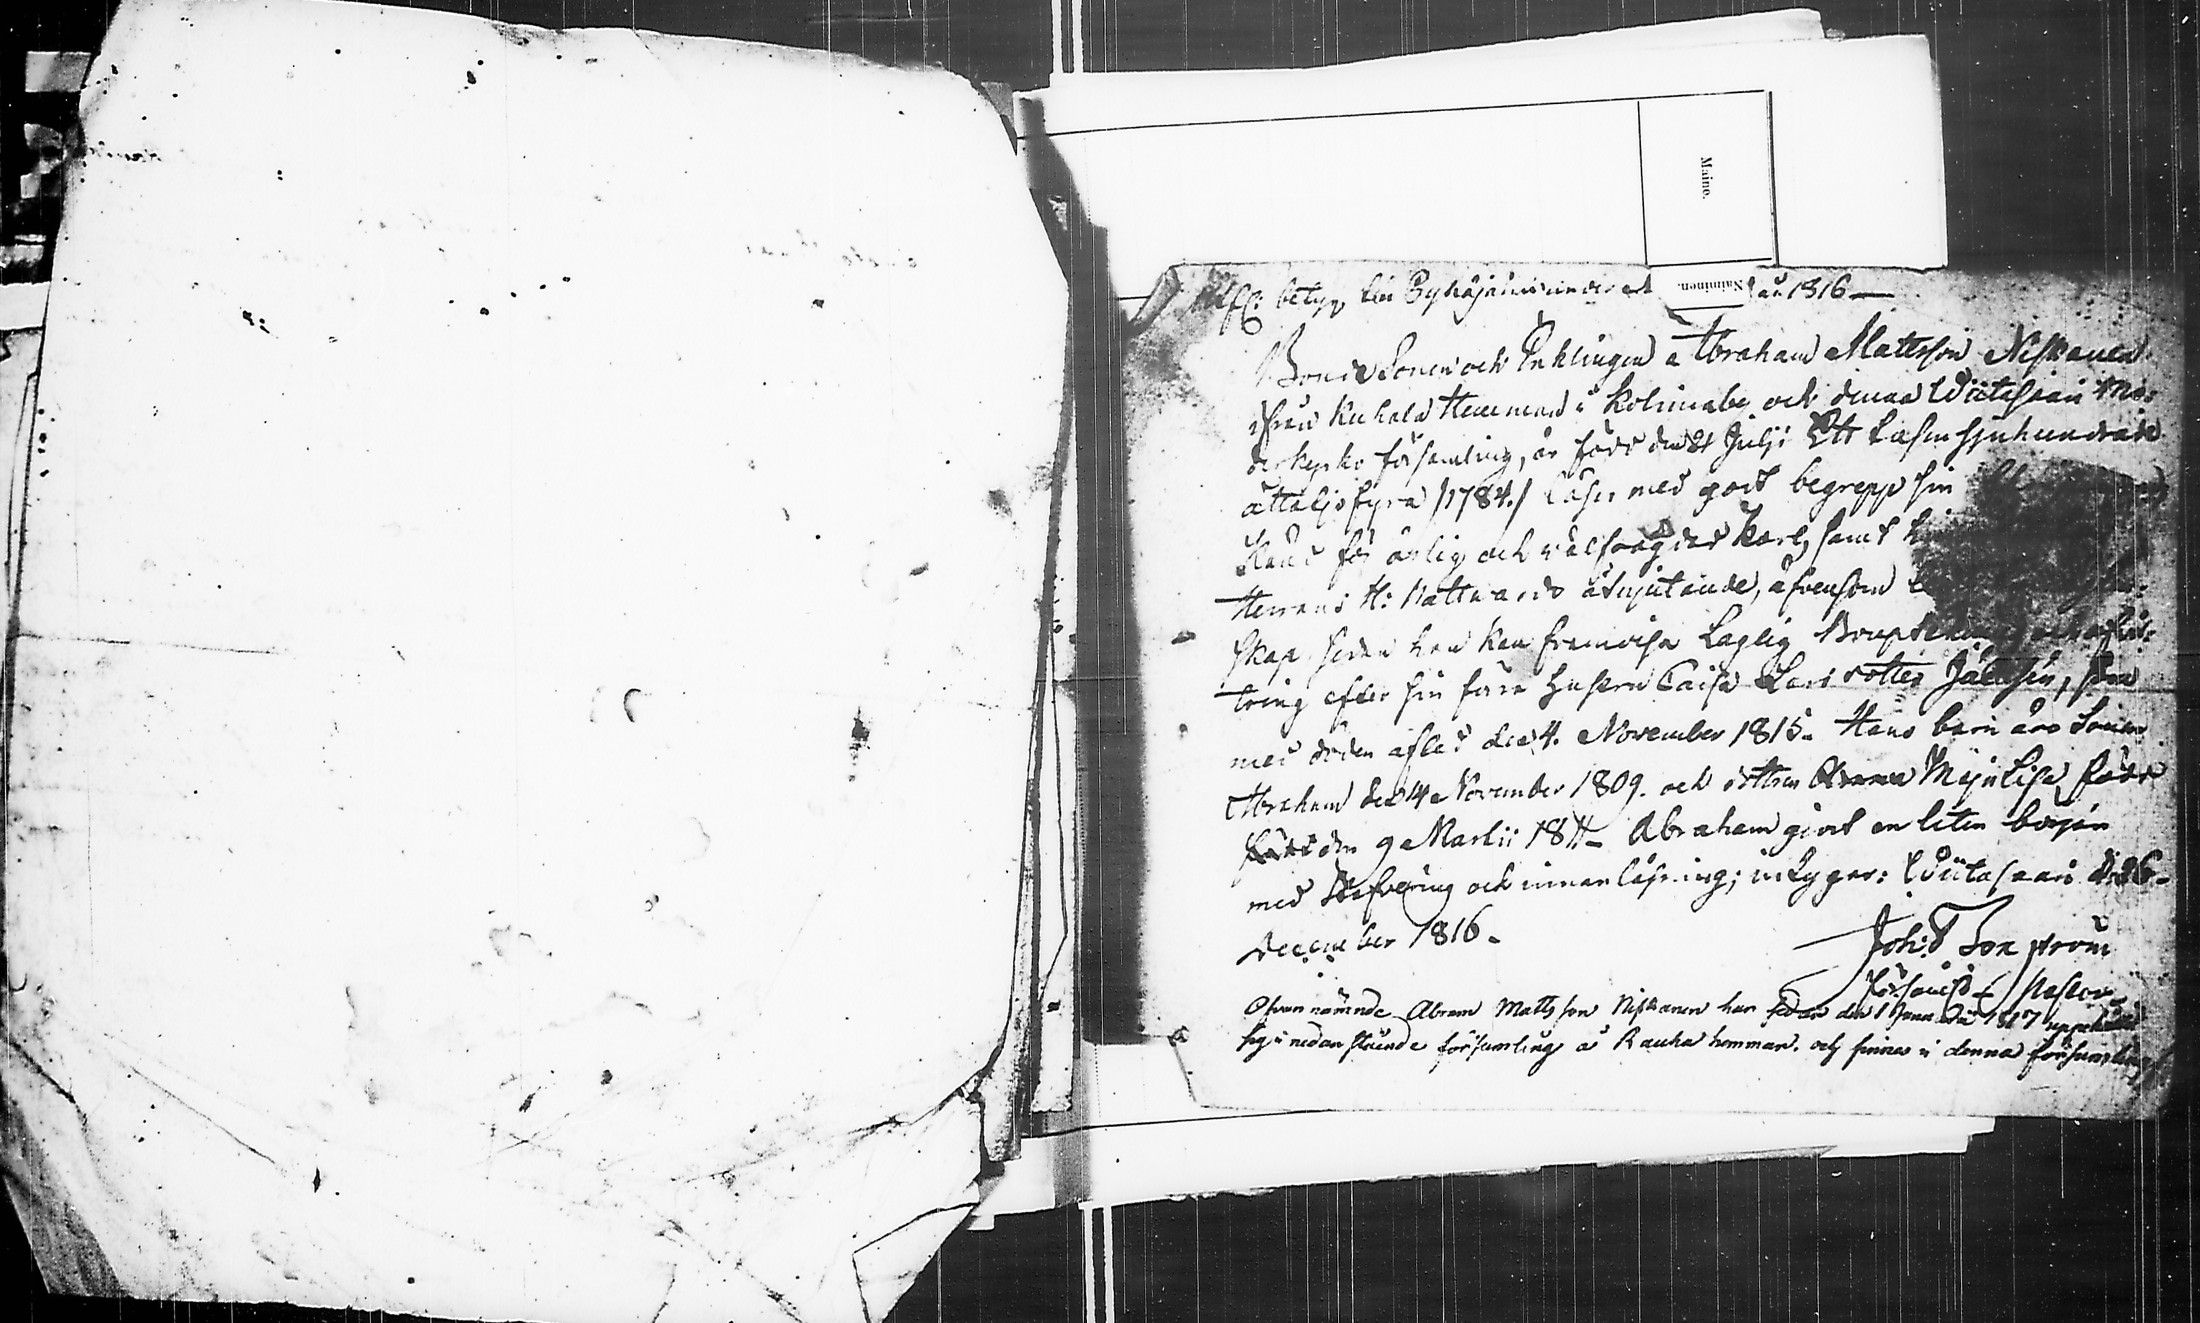 Maine.
betyg till Naiminen. 1816 —
Bonde Sonen och Enklingen Abraham Mattsson Niskanen
ifrån Hemman i Kolimaby och denna Wiitasaari Mo=
derkyrko församling, är född den 21 Julii Ett tusen sjuhundrade
åttatijo fyra /1784./ läser med godt begrepp sin
känd för ärlig och Karl, samt
Herrans H: Nattvards åtnjutande, äfvensom
skap, sedan han kan framvisa Laglig
tring efter sin förra Hustru Caisa Lars dotter som
med döden afled den 4. November 1815. Hans barn äro Sonen
Abraham den 14 November 1809. och dottren Maja Lisa född
den 9 Martii 1811 – Abraham gjort en liten början
med stafvering och innan läsning; intygar: Wiitasaari d: 26
December 1816.
Joh:
Pastor
Ofvannämnde Abram Matts son Niskanen har sedan den 1 Januarii 1817 uppehållit
sig i nedanstående församling å Rauha hemman. och finnes i denna församling